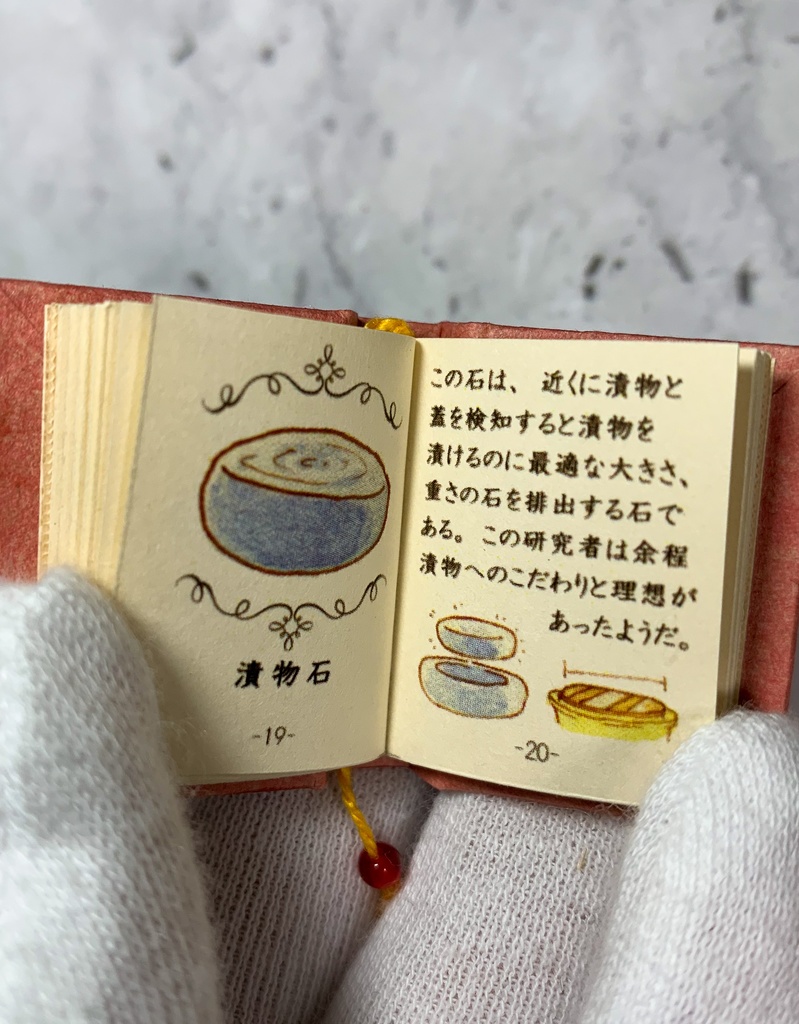 漬物石
-19-
この石は、近くに漬物と
蓋を検知すると漬物を
漬けるのに最適な大きさ、
重さの石を排出する石で
ある。この研究者は余程
漬物へのこだわりと理想が
あったようだ。
-20-